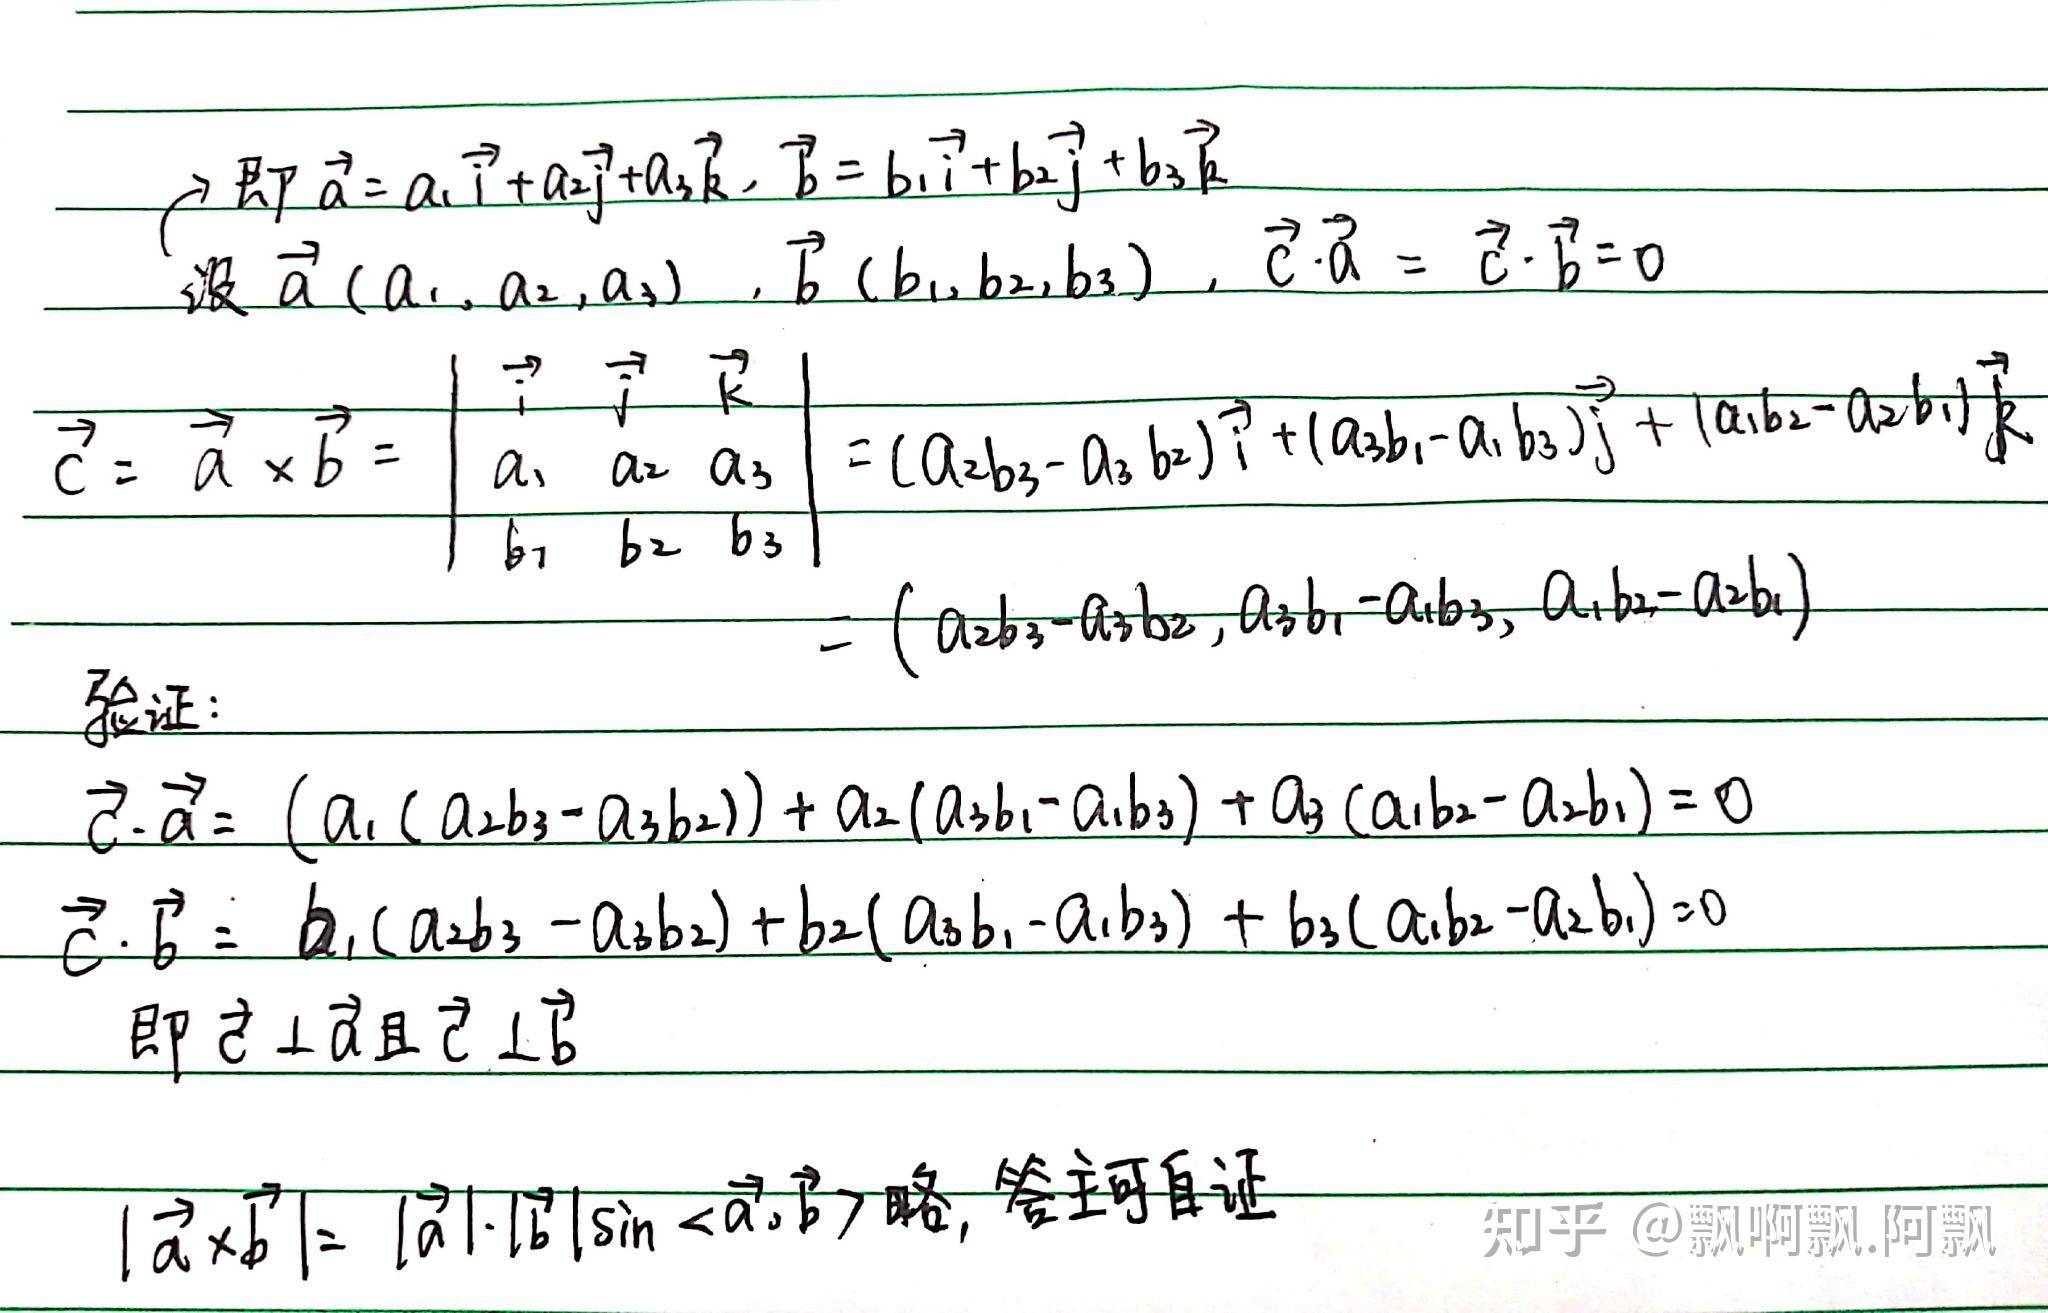 即 a⃗ = a₁i⃗ + a₂j⃗ + a₃k⃗, b⃗ = b₁i⃗ + b₂j⃗ + b₃k⃗
设 a⃗ (a₁, a₂, a₃), b⃗ (b₁, b₂, b₃), c⃗·a⃗ = c⃗·b⃗ = 0
c⃗ = a⃗ × b⃗ = | i⃗ j⃗ k⃗ |
| a₁ a₂ a₃ | = (a₂b₃ - a₃b₂)i⃗ + (a₃b₁ - a₁b₃)j⃗ + (a₁b₂ - a₂b₁)k⃗
| b₁ b₂ b₃ |
= (a₂b₃ - a₃b₂, a₃b₁ - a₁b₃, a₁b₂ - a₂b₁)
验证:
c⃗·a⃗ = (a₁(a₂b₃ - a₃b₂)) + a₂(a₃b₁ - a₁b₃) + a₃(a₁b₂ - a₂b₁) = 0
c⃗·b⃗ = b₁(a₂b₃ - a₃b₂) + b₂(a₃b₁ - a₁b₃) + b₃(a₁b₂ - a₂b₁) = 0
即 c⃗ ⊥ a⃗ 且 c⃗ ⊥ b⃗
|a⃗ × b⃗| = |a⃗|·|b⃗| sin <a⃗, b⃗> 略, 答主可自证
知乎 @飘啊飘.阿飘